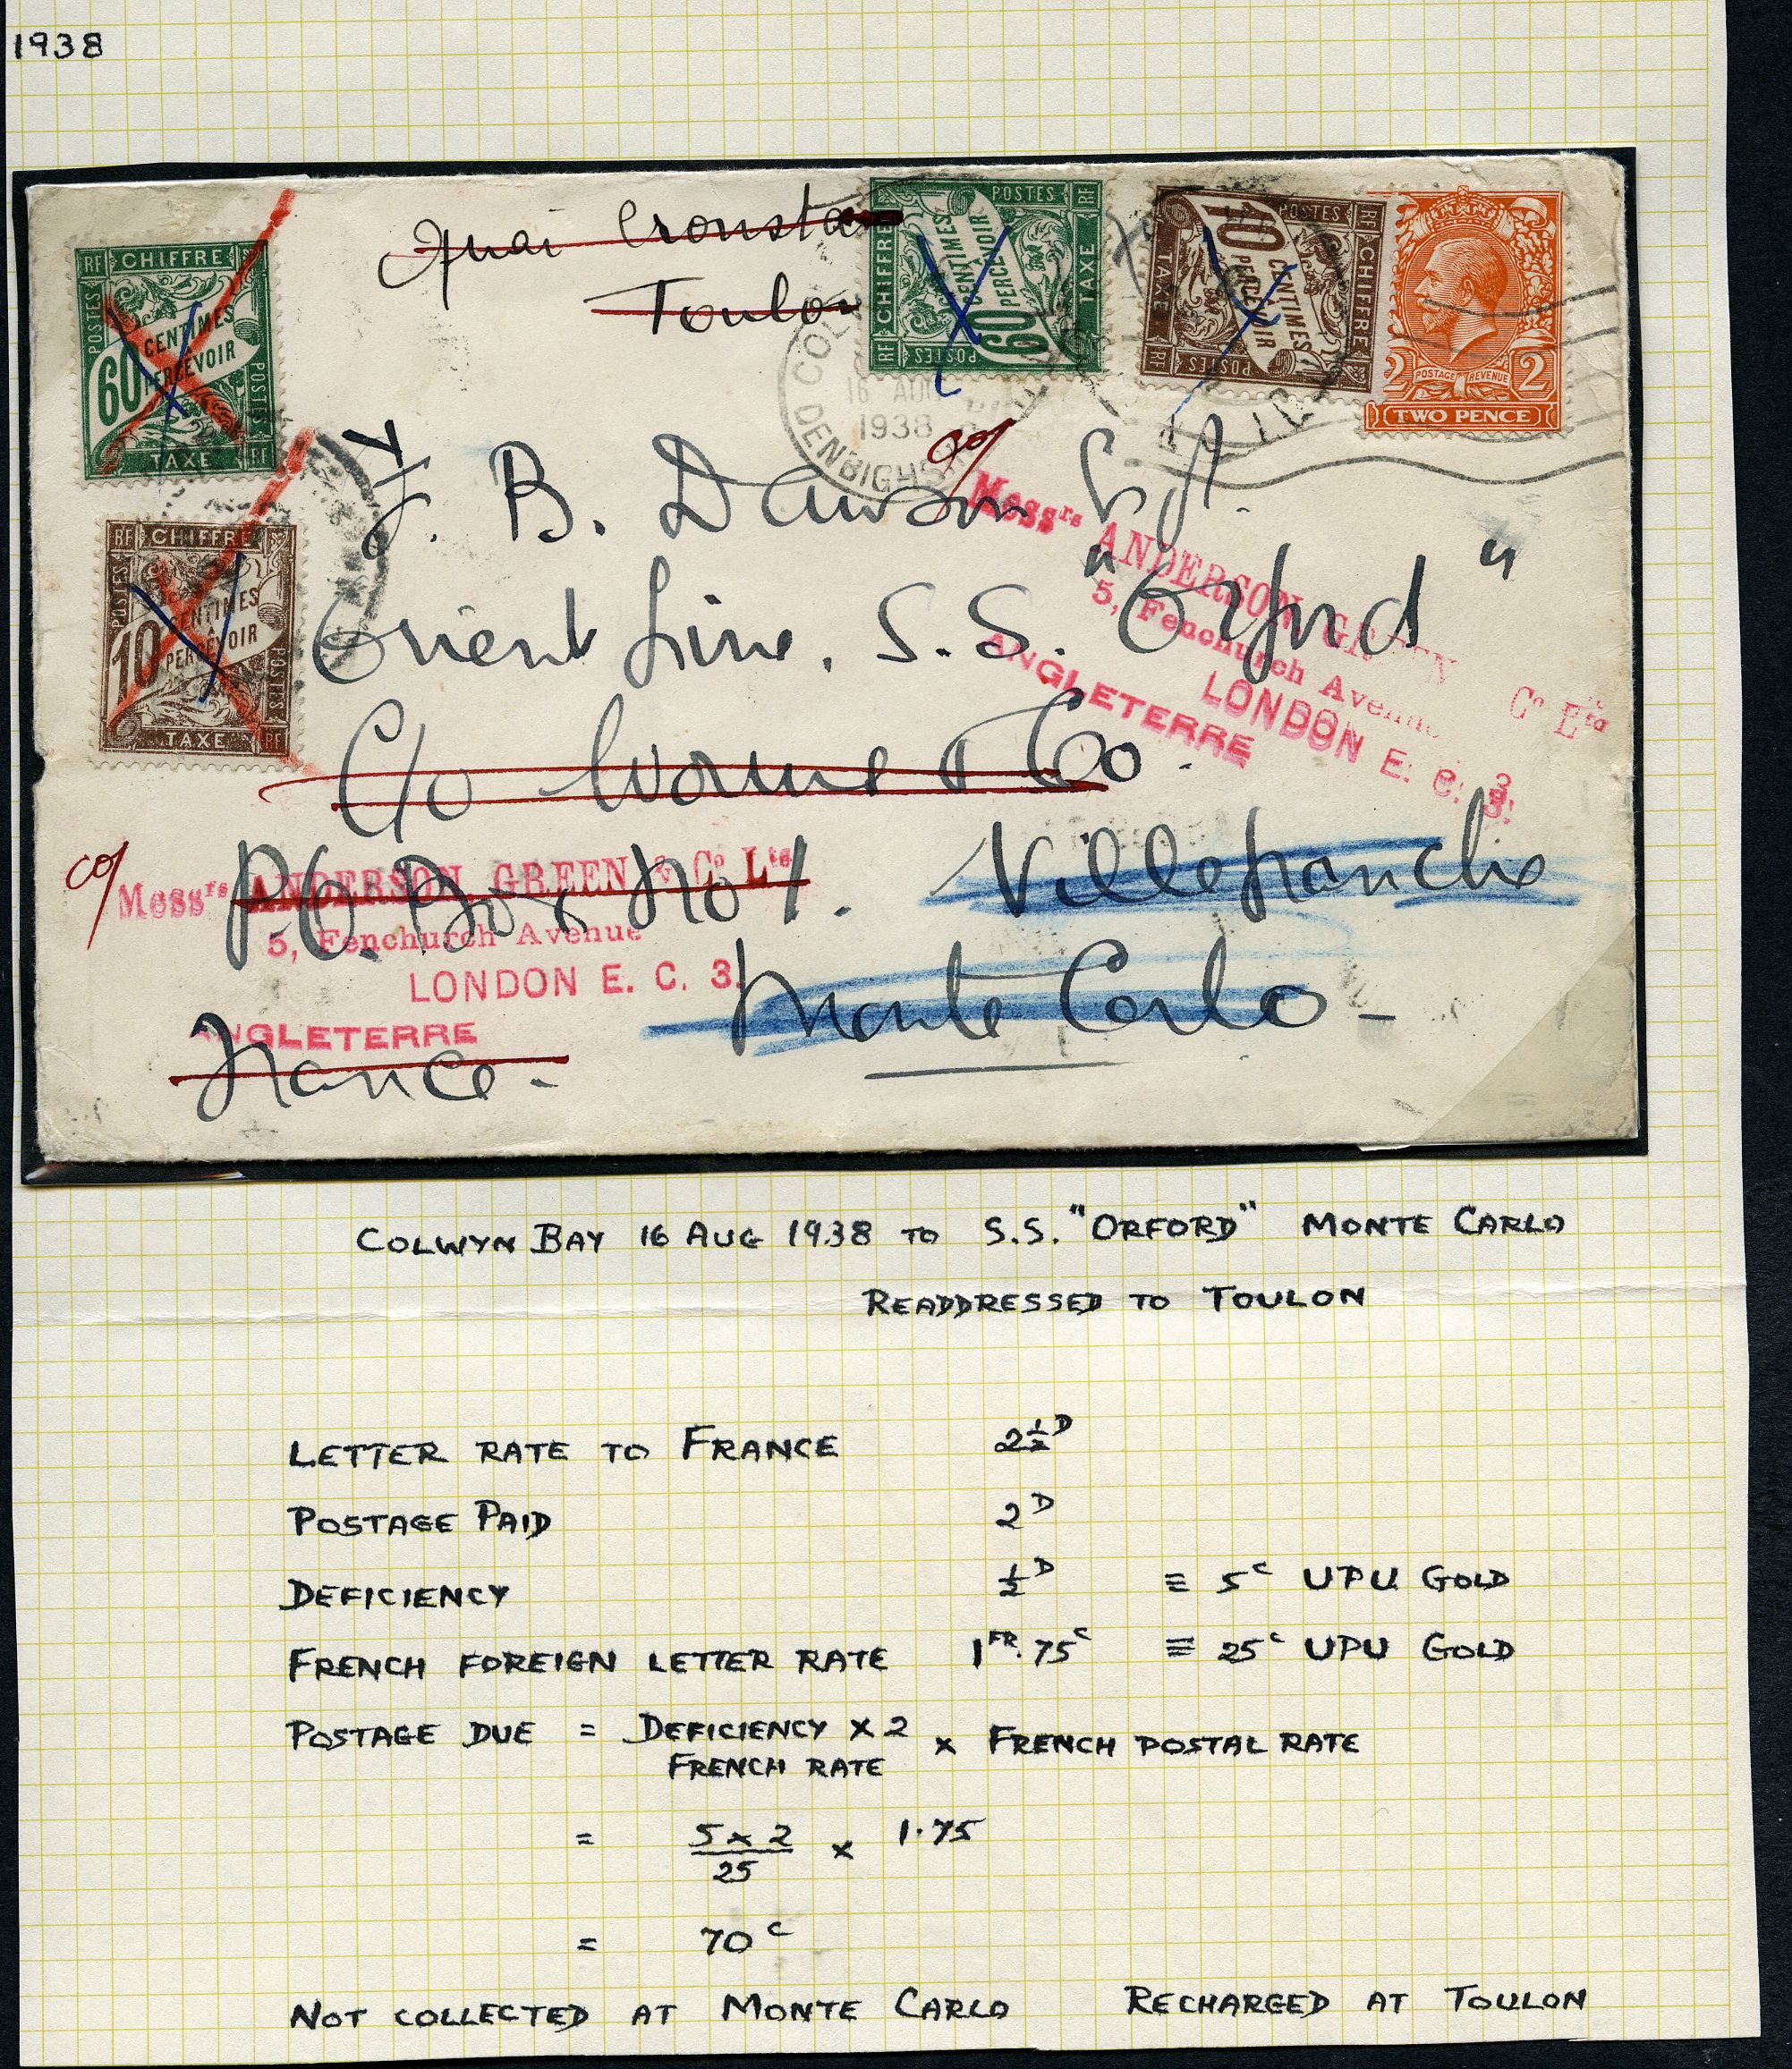 1938
Quai Cronsta
Toulon
RF CHIFFRE
POSTES
60 CENTIMES
À PERCEVOIR
POSTES
TAXE RF
RF CHIFFRE
POSTES
10 CENTIMES
À PERCEVOIR
POSTES
TAXE RF
POSTES RF
CHIFFRE
60 CENTIMES
À PERCEVOIR
TAXE
RF POSTES
POSTES RF
TAXE
10 CENTIMES
À PERCEVOIR
CHIFFRE
RF POSTES
2 POSTAGE REVENUE 2
TWO PENCE
COL
16 AUG
1938
DENBIGHS
J. B. Dawson
Orient Line, S.S. "Orford"
C/o Worms & Co.
P.O. Box No 1. Villefranche
Monte Carlo -
France -
co/
Messrs ANDERSON GREEN & Co Ltd
5, Fenchurch Avenue
LONDON E. C. 3.
ANGLETERRE
co/
Messrs ANDERSON GREEN Co Ltd
5, Fenchurch Avenue
LONDON E. C. 3.
ANGLETERRE
COLWYN BAY 16 AUG 1938 TO S.S. "ORFORD" MONTE CARLO
READDRESSED TO TOULON
LETTER RATE TO FRANCE 2½D
POSTAGE PAID 2D
DEFICIENCY ½D ≡ 5c UPU GOLD
FRENCH FOREIGN LETTER RATE 1FR.75c ≡ 25c UPU GOLD
POSTAGE DUE = DEFICIENCY x 2 x FRENCH POSTAL RATE
FRENCH RATE
= 5 x 2 x 1.75
25
= 70c
NOT COLLECTED AT MONTE CARLO RECHARGED AT TOULON